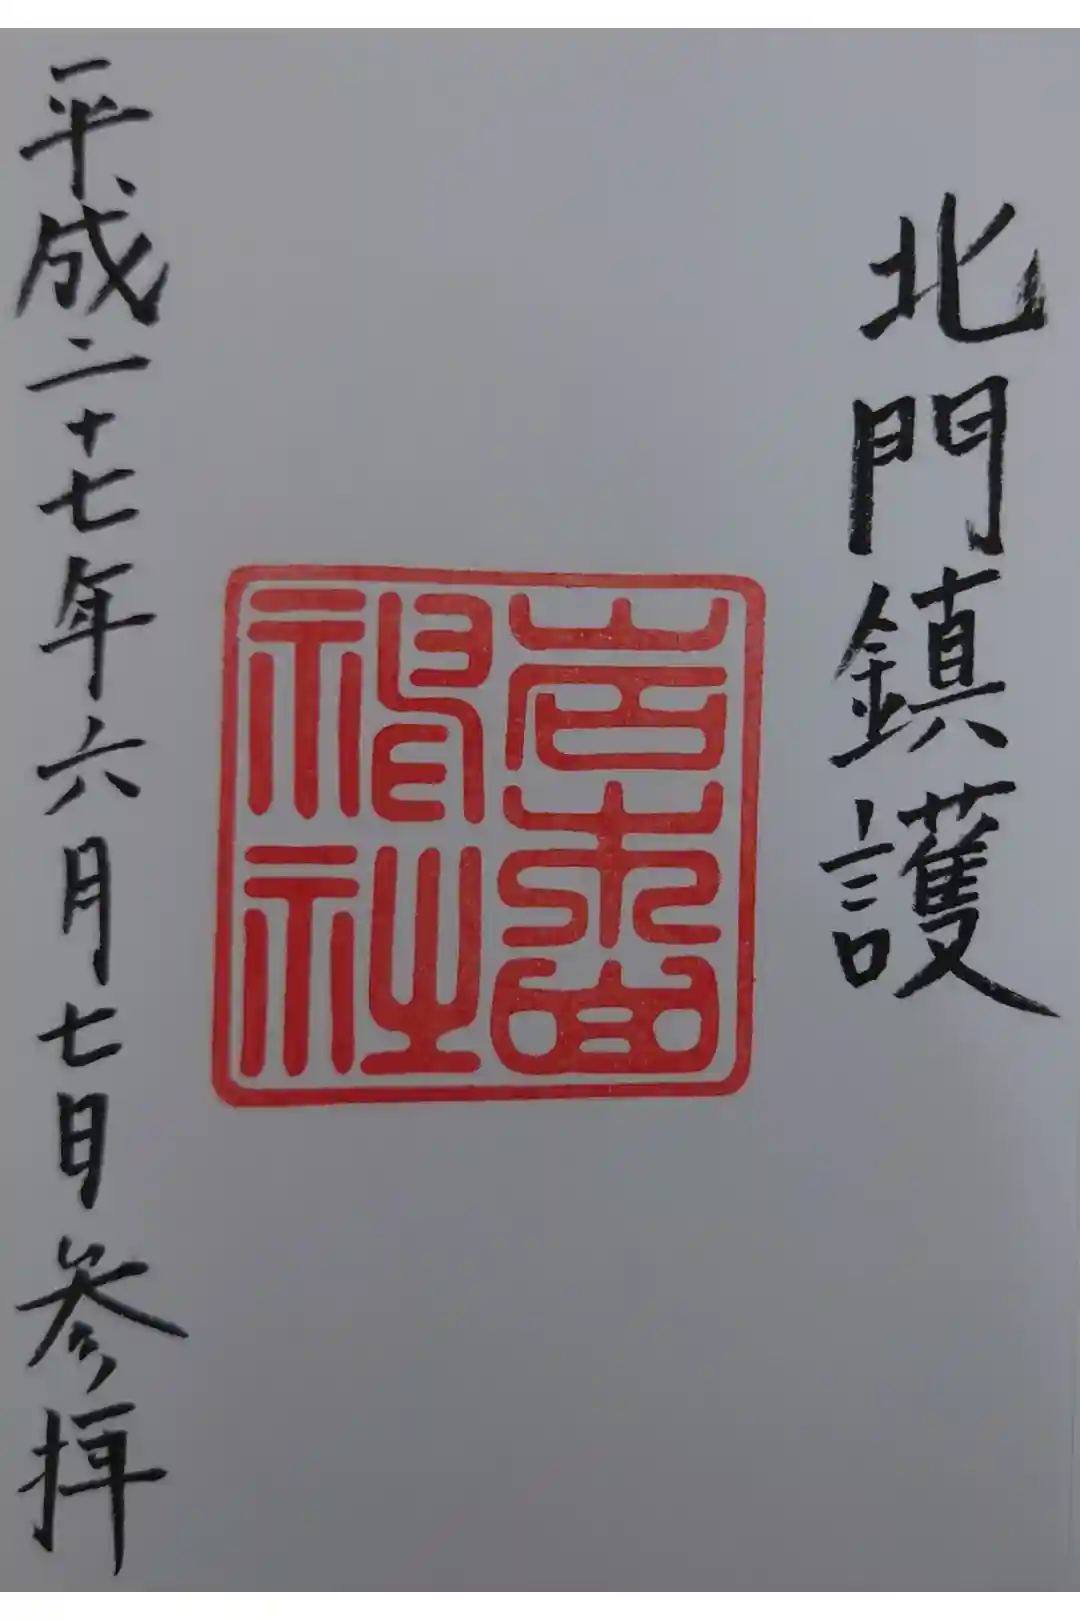 北門鎮護
岩木山
神社
平成二十七年六月七日参拝